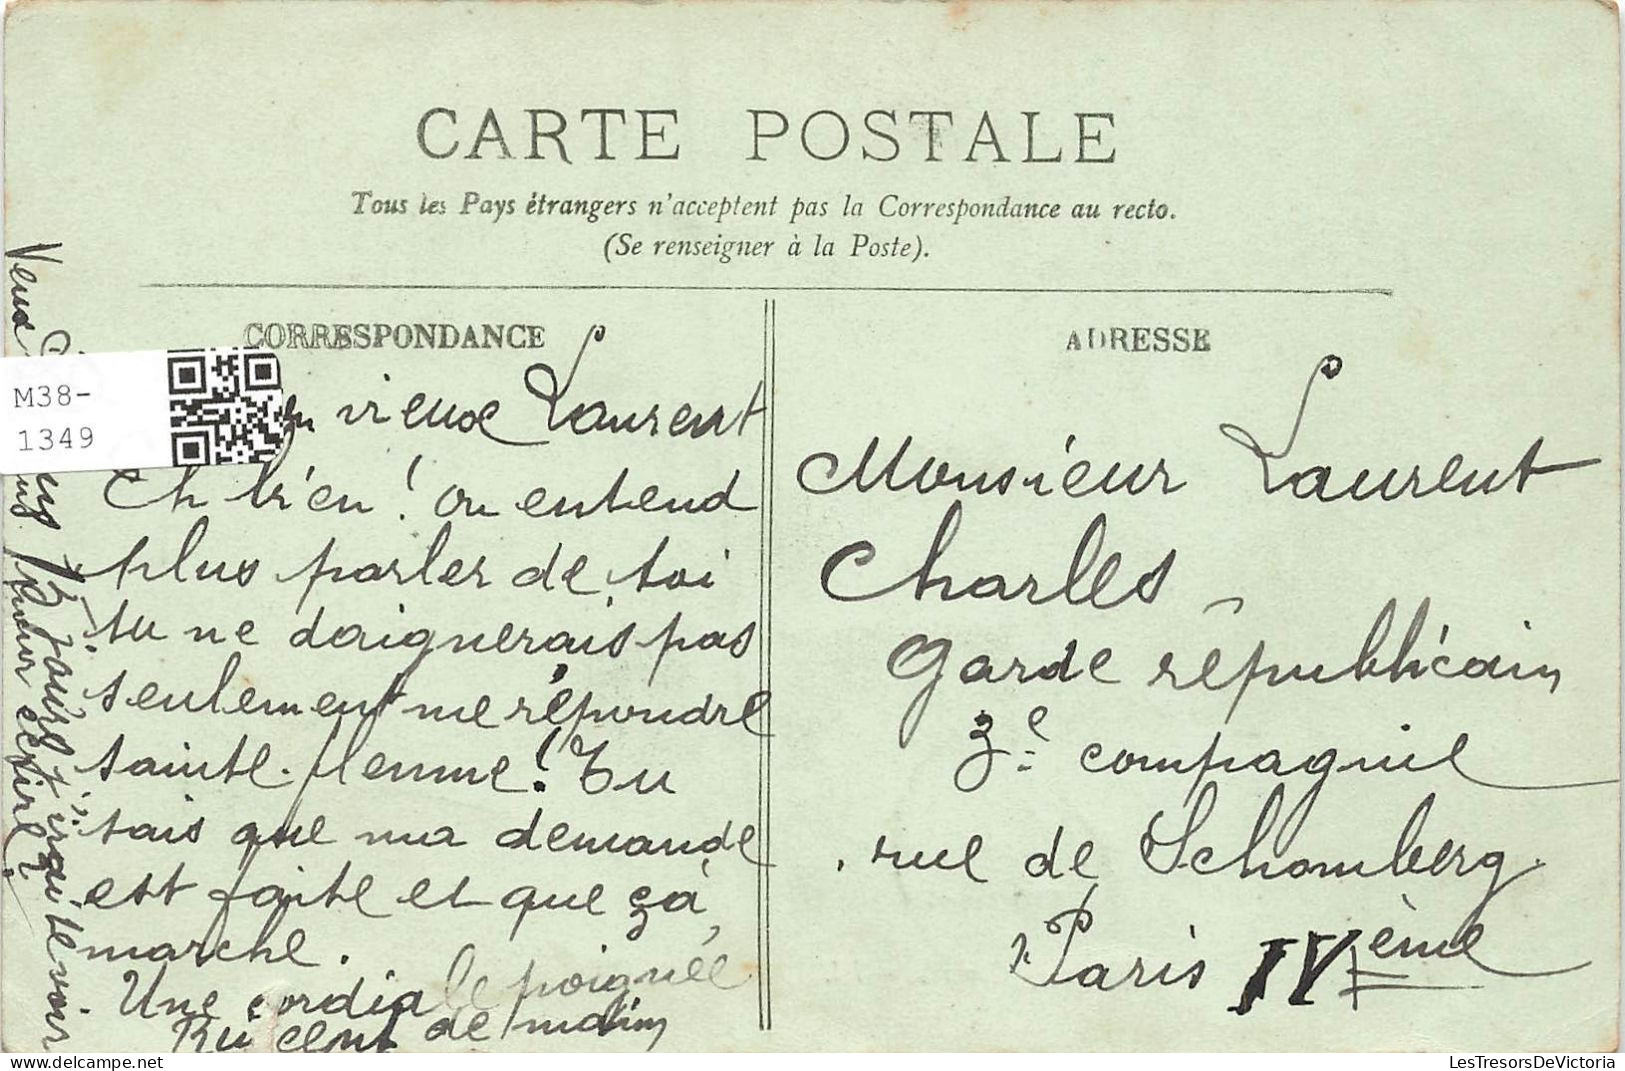 CARTE POSTALE
Tous les Pays étrangers n'acceptent pas la Correspondance au recto.
(Se renseigner à la Poste).
CORRESPONDANCE
ADRESSE
M38-
1349
vieux Laurent
Eh bien! on entend
plus parler de toi
tu ne daignerais pas
seulement me répondre
sainte flemme! Tu
sais que ma demande
est faite et que çà
marche.
Une cordiale poignée
de main
Monsieur Laurent
Charles
Garde républicain
3e compagnie
rue de Schomberg
Paris IVème
jours j'irai te voir
LesTresorsDeVictoria.com